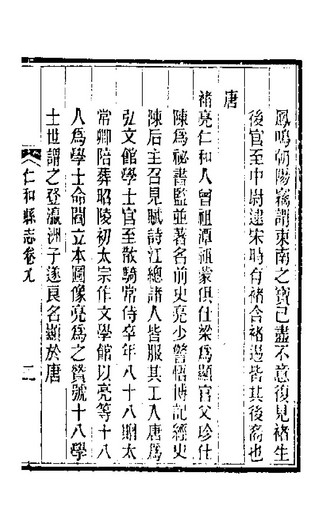 鳳鳴朝陽嘗謂東南之寶已盡不意復見褚生
後官至中尉逮宋時有褚含褚遐皆其後裔也
唐
褚亮仁和人曾祖湮祖蒙俱仕梁爲顯官父玠仕
陳爲祕書監並著名前史亮少警悟博記經史
陳后主召見賦詩江總諸人皆服其工入唐爲
弘文館學士官至散騎常侍卒年八十八贈太
常卿陪葬昭陵初太宗作文學館以亮等十八
人爲學士命閻立本圖像亮爲之贊號十八學
士世謂之登瀛洲子遂良名顯於唐
仁和縣志卷九
二